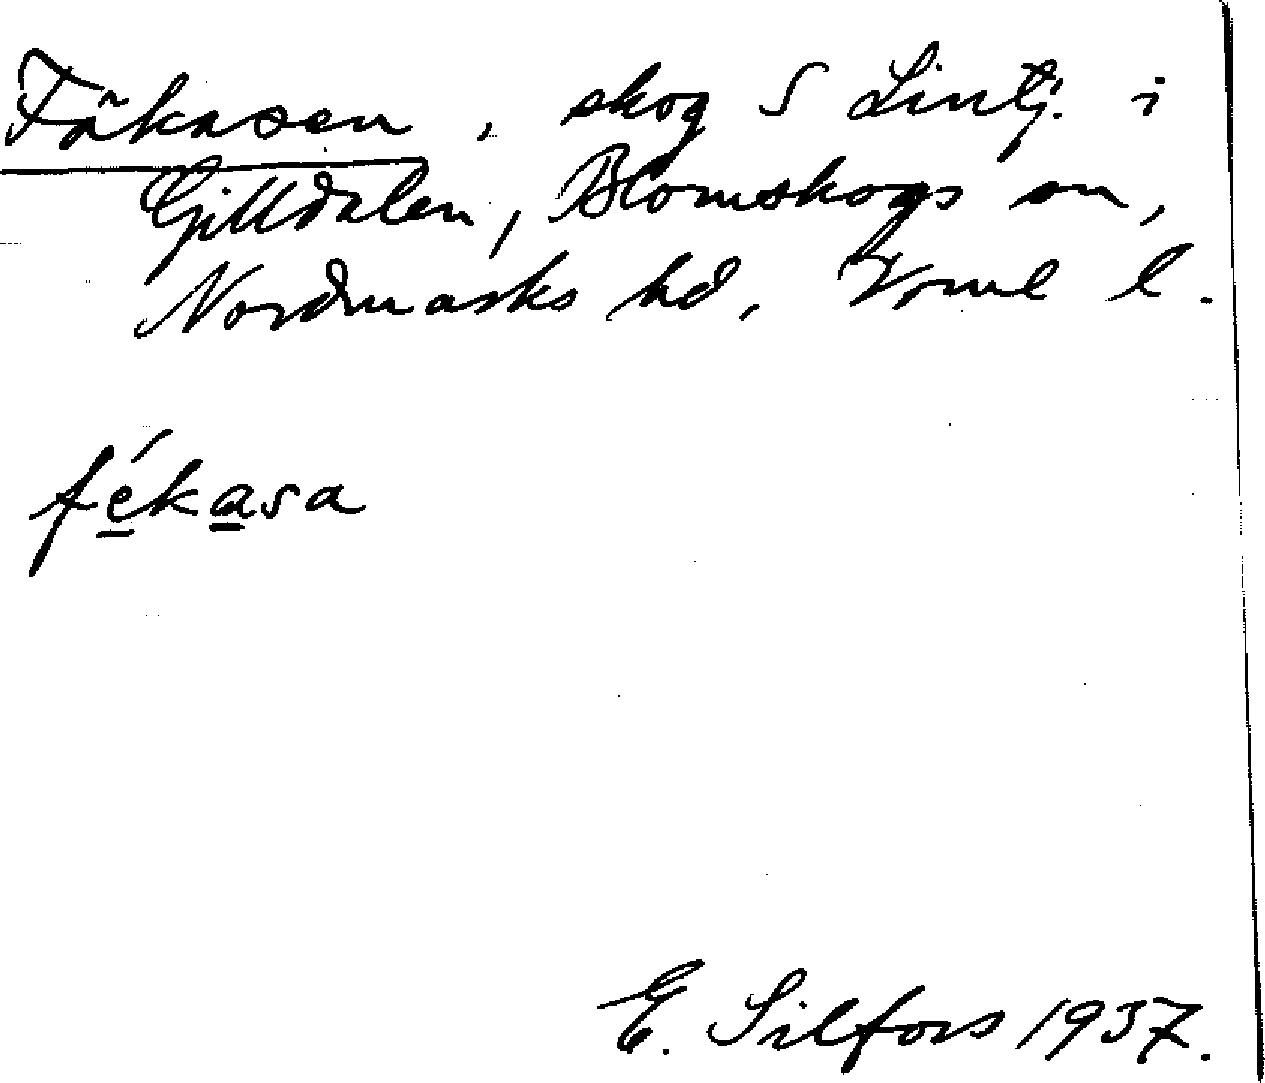 Fäkasen, skog S Lintj. i
Gilldalen, Blomskogs sn,
Nordmarks hd, Verml l.
fékasa
E. Silfors 1937.